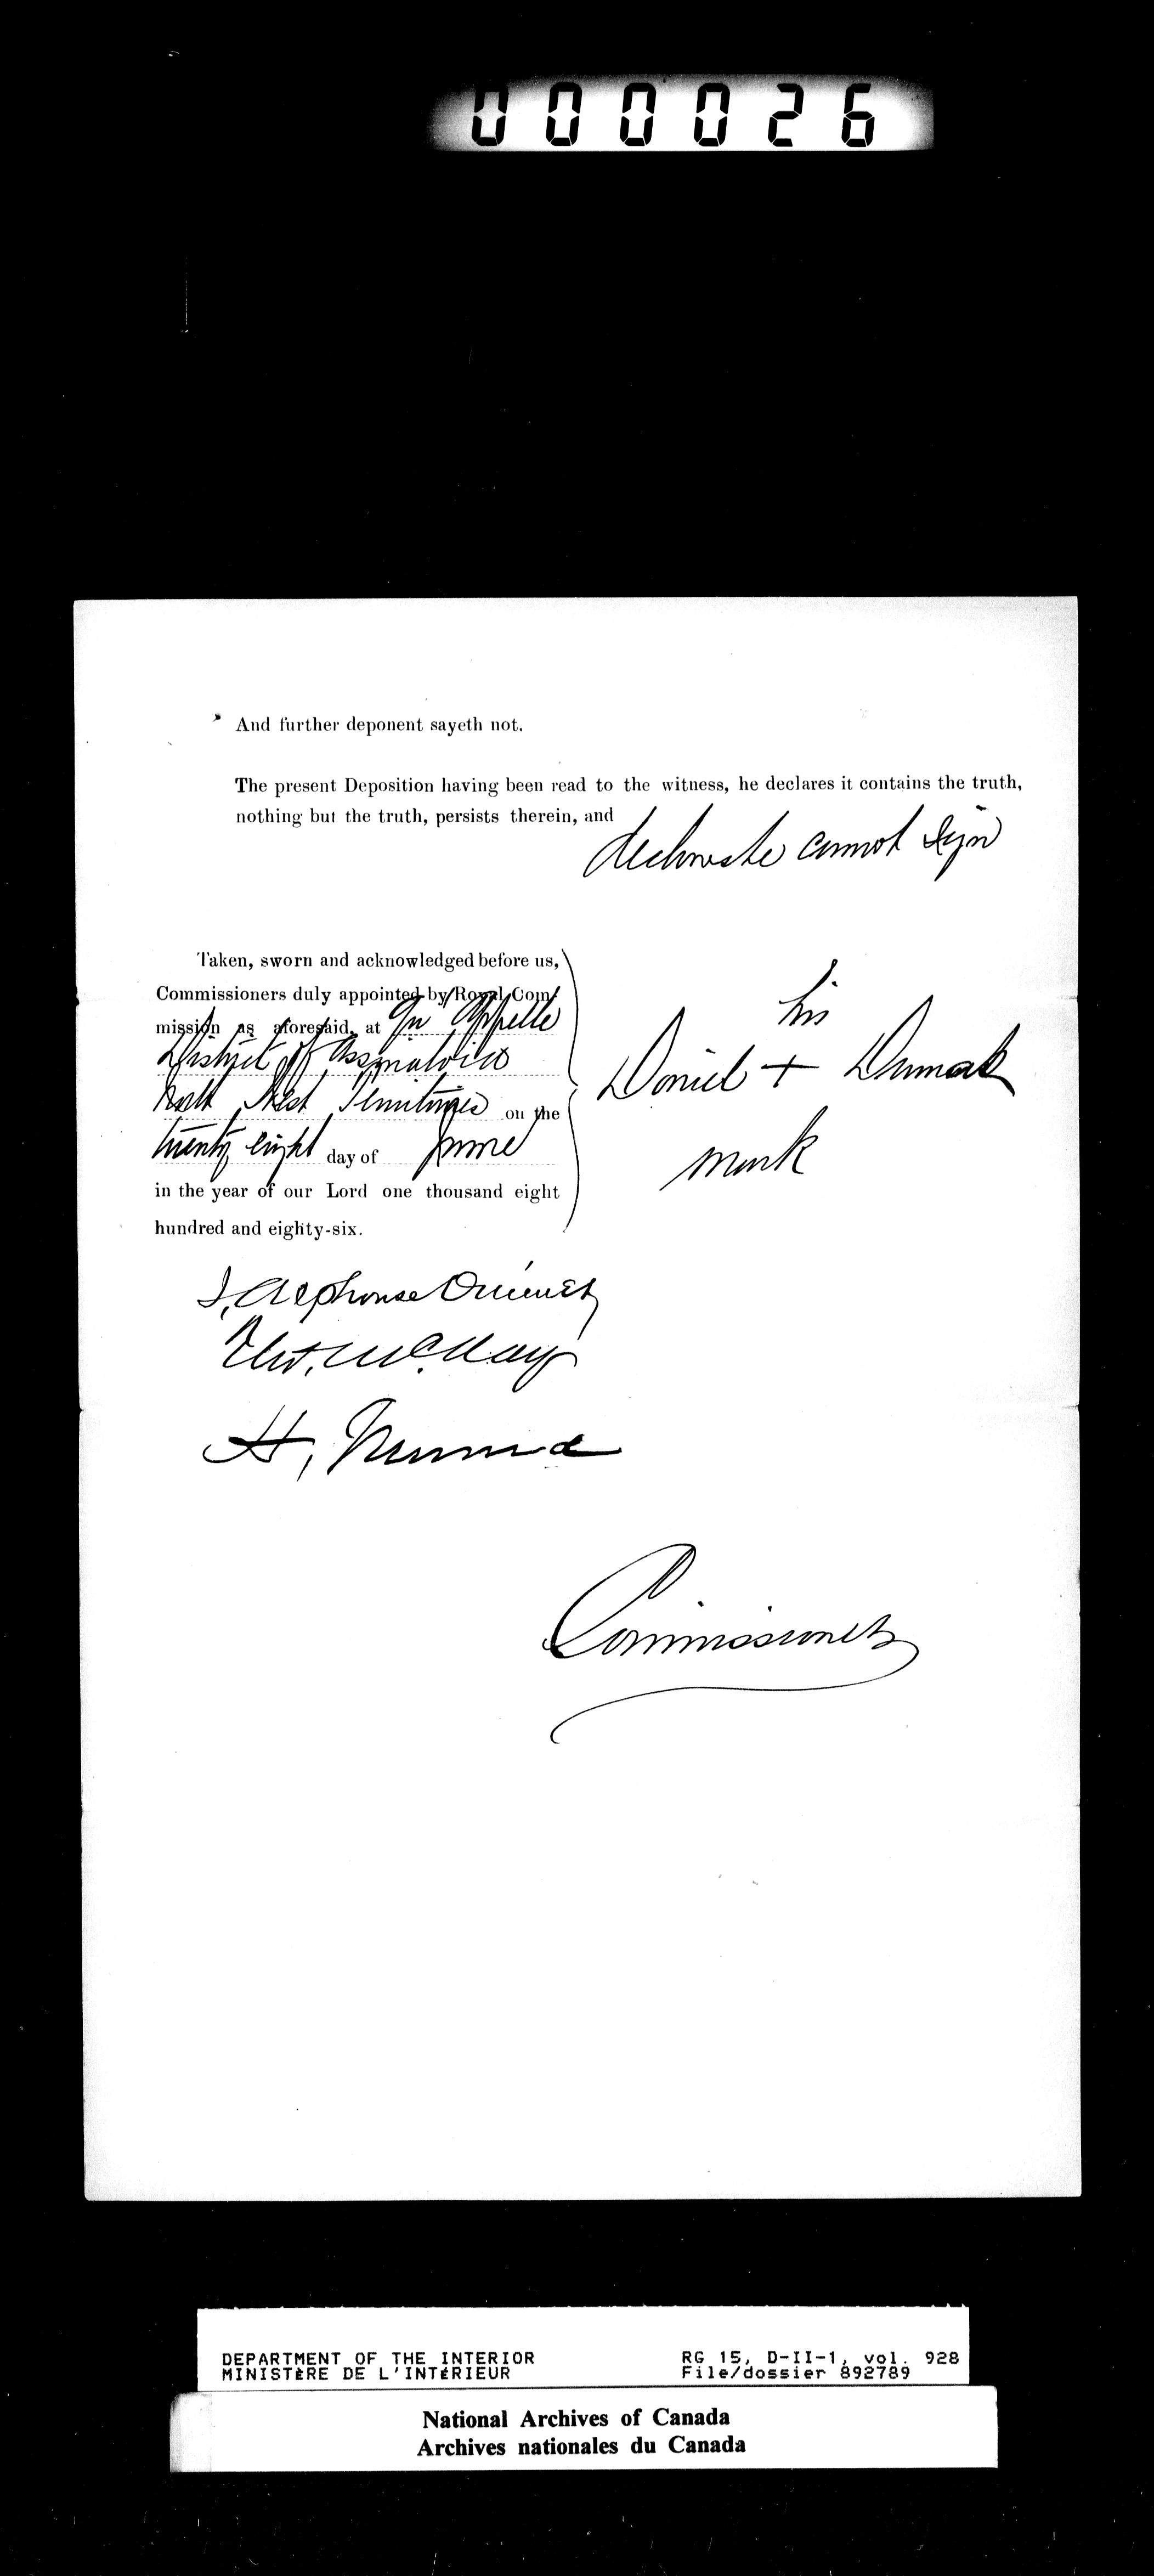 000026
And further deponent sayeth not.
The present Deposition having been read to the witness, he declares it contains the truth,
nothing but the truth, persists therein, and
declares he cannot sign
Taken, sworn and acknowledged before us,
Commissioners duly appointed by Royal Com-
mission as aforesaid, at Qu'Appelle
District of Assiniboia
North West Territories on the
twenty eight day of June
in the year of our Lord one thousand eight
hundred and eighty-six.
his
Daniel +
mark
J, Alphonse Ouimet
McKay
H,
Commissioners
DEPARTMENT OF THE INTERIOR RG 15, D-II-1, vol. 928
MINISTÈRE DE L'INTÉRIEUR File/dossier 892789
National Archives of Canada
Archives nationales du Canada